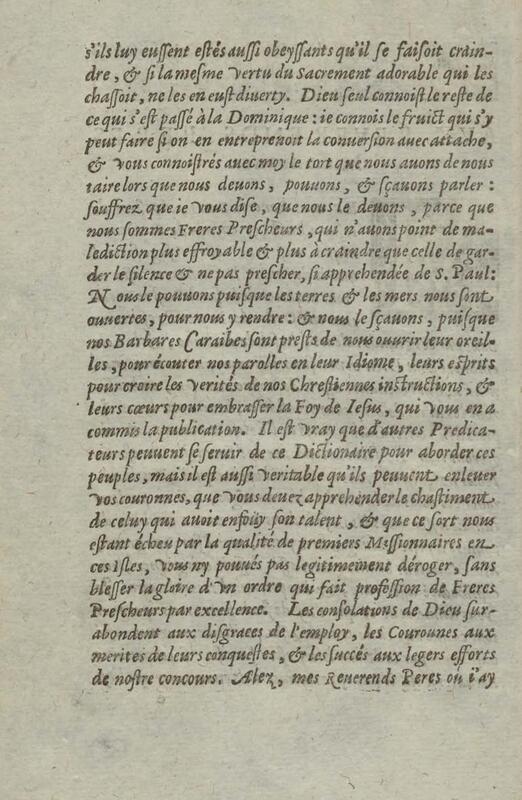 s'ils luy eussent estés aussi obeyssants qu'il se faisoit crain-
dre, & si la mesme vertu du Sacrement adorable qui les
chassoit, ne les en eust diverty. Dieu seul connoist le reste de
ce qui s'est passé à la Dominique: ie connois le fruict qui s'y
peut faire si on en entreprenoit la conversion avec attache,
& vous connoistrés avec moy le tort que nous avons de nous
taire lors que nous devons, pouvons, & sçavons parler:
souffrez que ie vous dise, que nous le devons, parce que
nous sommes Freres Prescheurs, qui n'avons point de ma-
lediction plus effroyable & plus à craindre que celle de gar-
der le silence & ne pas prescher, si apprehendée de S. Paul:
Nous le pouvons puisque les terres & les mers nous sont
ouvertes, pour nous y rendre: & nous le sçavons, puisque
nos Barbares Caraibes sont prests de nous ouvrir leur oreil-
les, pour écouter nos parolles en leur Idiome, leurs esprits
pour croire les verités de nos Chrestiennes instructions, &
leurs cœurs pour embrasser la Foy de Iesus, qui vous en a
commis la publication. Il est vray que d'autres Predica-
teurs peuvent se servir de ce Dictionaire pour aborder ces
peuples, mais il est aussi veritable qu'ils peuvent enlever
vos couronnes, que vous devez apprehender le chastiment
de celuy qui avoit enfoüy son talent, & que ce sort nous
estant écheu par la qualité de premiers Missionnaires en
ces Isles, vous ny pouvés pas legitimement déroger, sans
blesser la gloire d'vn ordre qui fait profession de Freres
Prescheurs par excellence. Les consolations de Dieu sur-
abondent aux disgraces de l'employ, les Courounes aux
merites de leurs conquestes, & les succés aux legers efforts
de nostre concours. Alez, mes Reverends Peres où i'ay